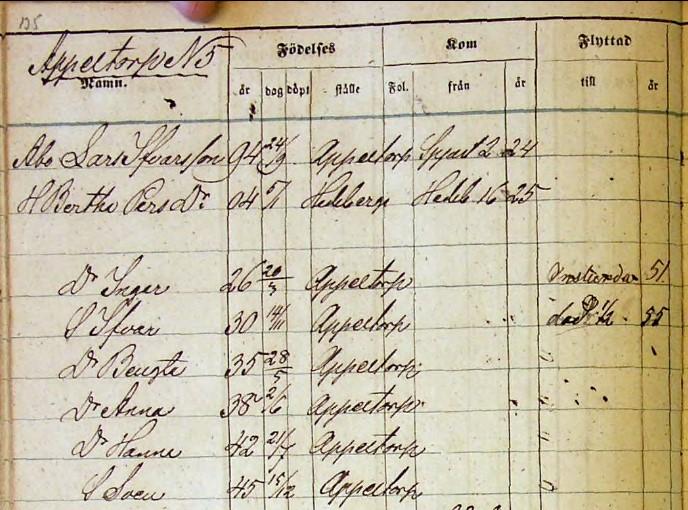 135
Appeltorp N 5
Namn.
Födelses Kom Flyttad
år dag döpt ställe Fol. från år till år
Abo Lars Ifvarsson 94 24/9 Appeltorp 2 24
H Bertha Pers Dr 04 5/1 Hedeberga Hedeb. 16 25
Dr Inger 26 20/3 Appeltorp 51
S Ifvar 30 14/11 Appeltorp död 1/2 55
Dr Bengta 35 28/5 Appeltorp
Dr Anna 38 2/6 Appeltorp
Dr Hanna 42 21/7 Appeltorp
S Sven 45 15/12 Appeltorp